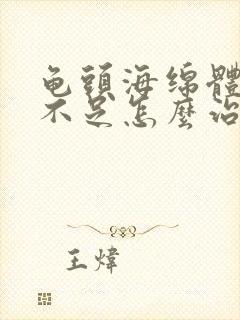 龟頭海绵體
不足怎麼治
王煒